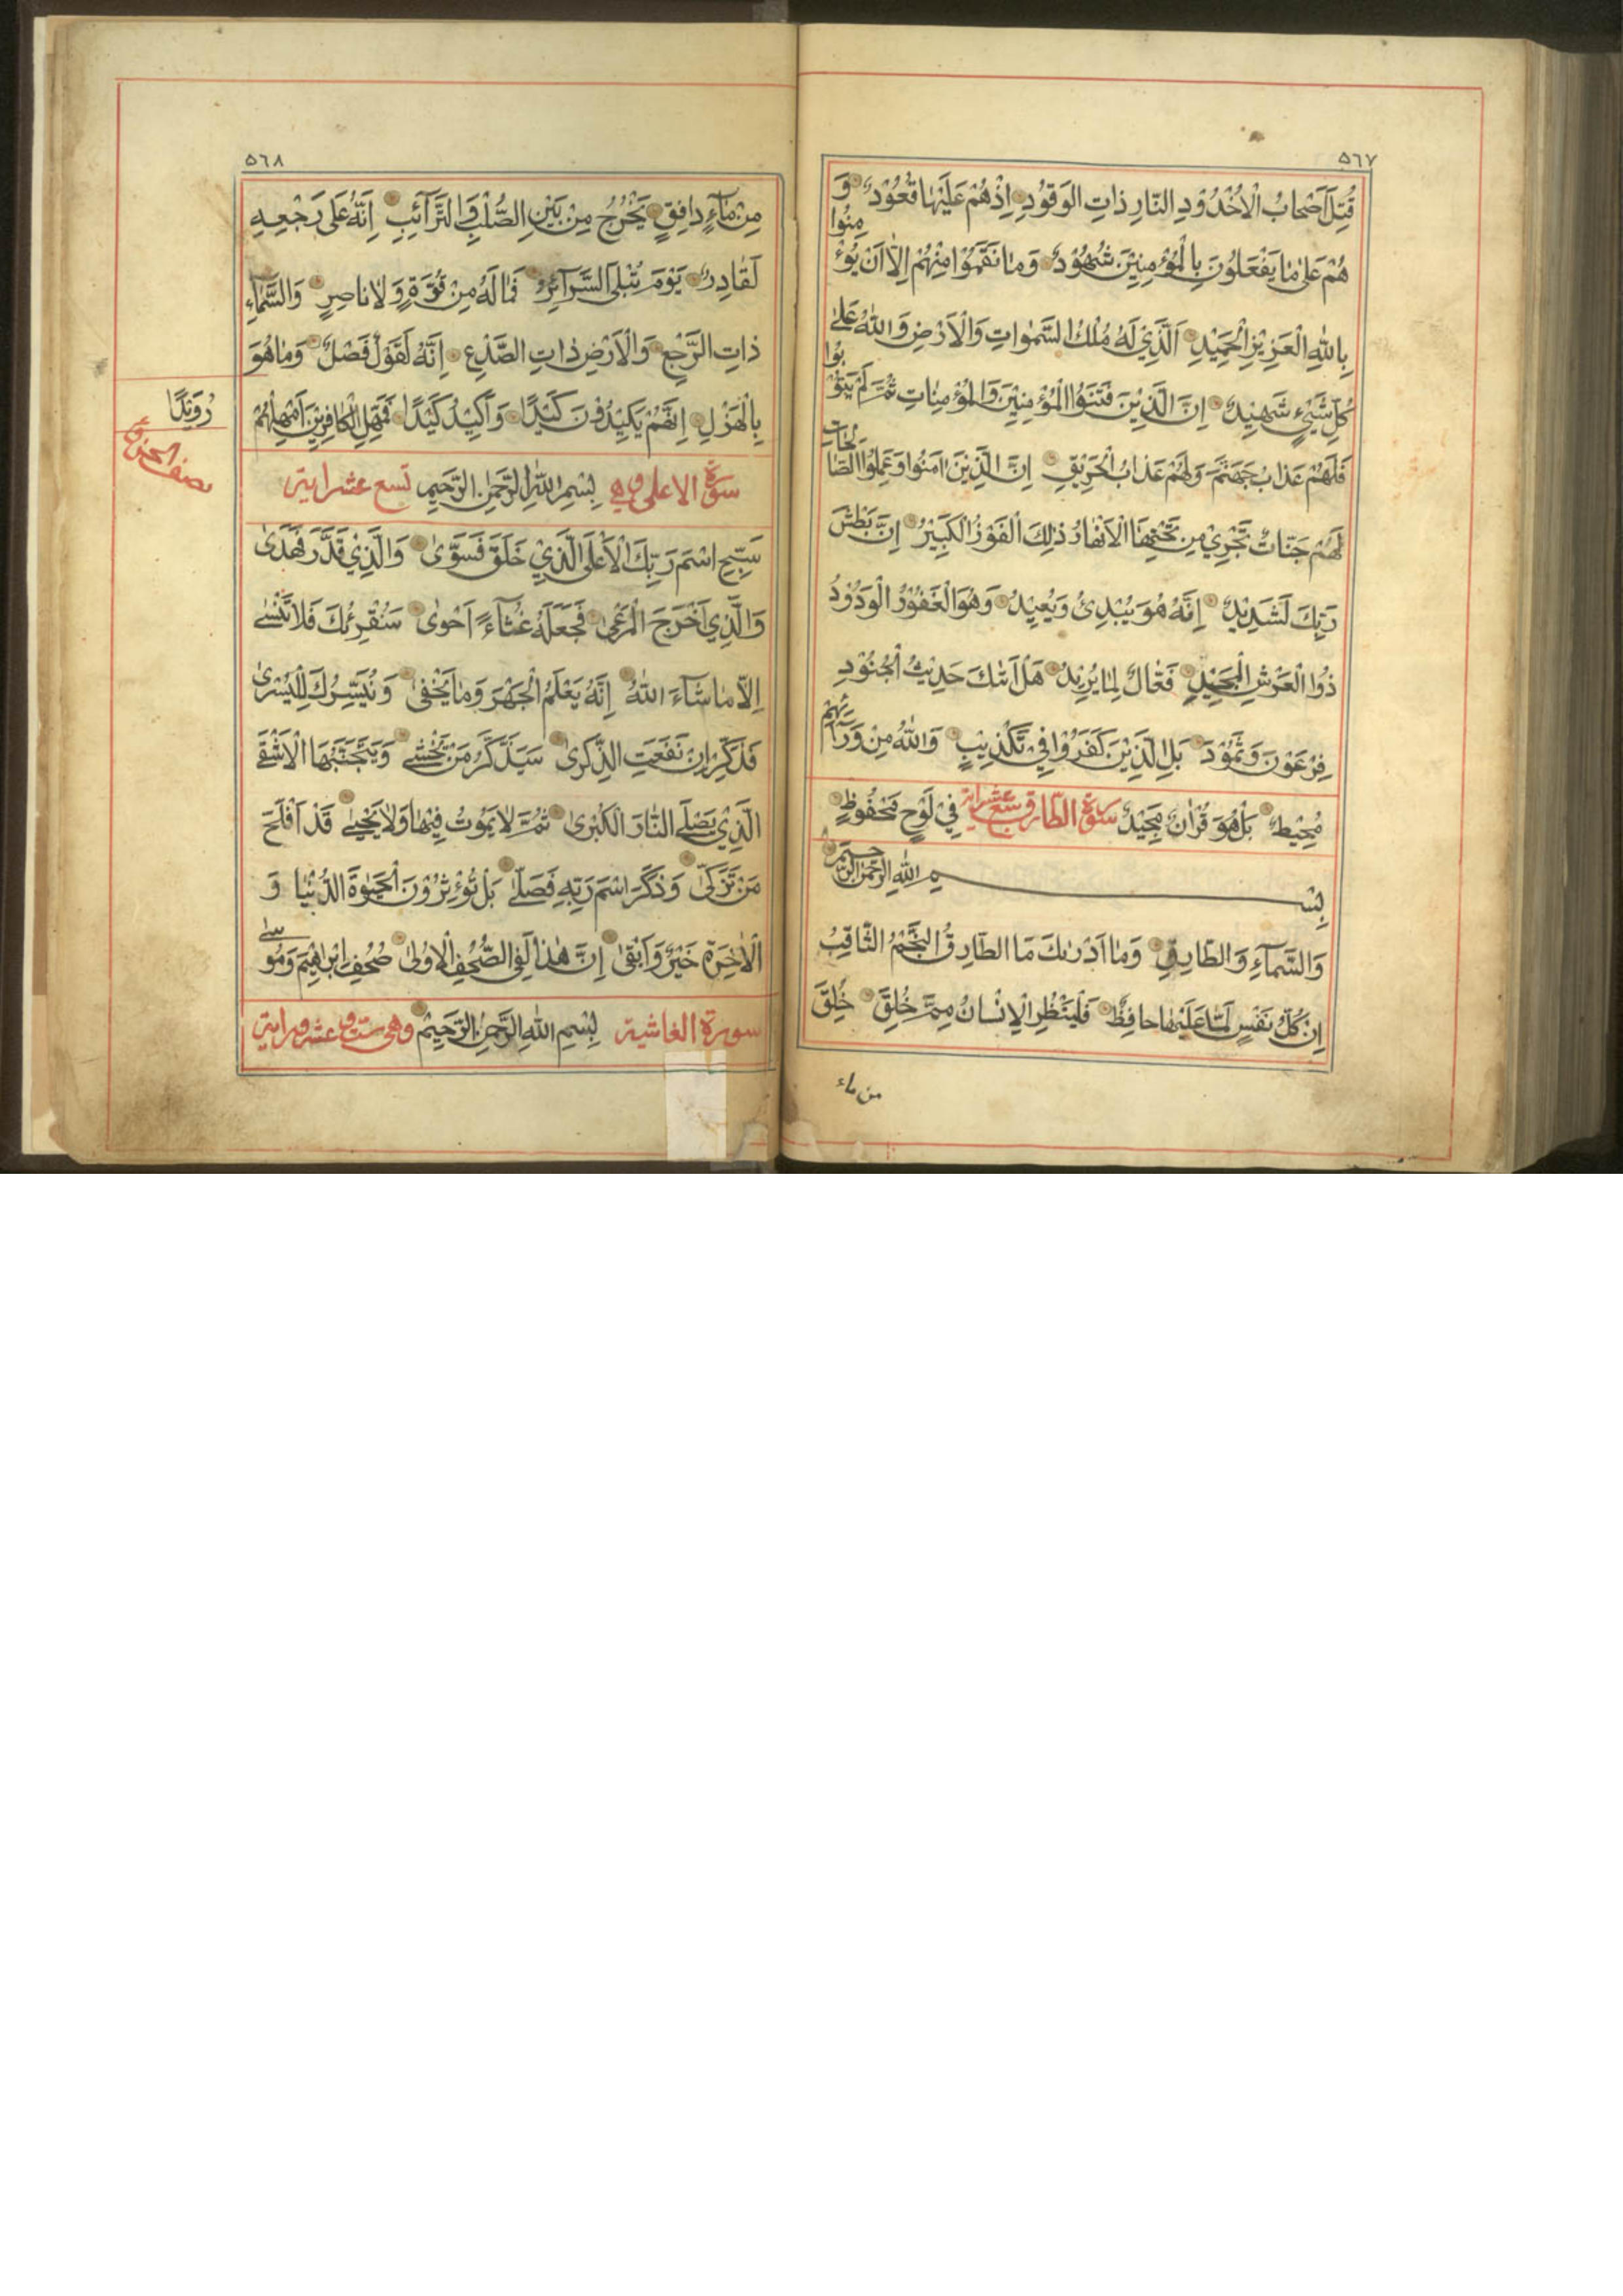 ٥٦٧
قُتِلَ اَصْحابُ الْاُخْدُوْدِ النّارِ ذاتِ الوَقوُدِ اِذْهُمْ عَلَيْهٰا قُعُوْدٌ وَ
هُمْ عَلىٰ مٰا يَفْعَلُونَ بِالْمُؤْمِنِيْنَ شُهُوْدٌ وَمٰا نَقَمُوْا مِنْهُمْ اِلّٰا اَنْ يُؤْمِنُوا
بِاللّٰهِ الْعَزِيْزِ الْحَمِيْدِ اَلَّذِيْ لَهُ مُلْكُ السَّمٰواتِ وَالْاَرْضِ وَاللّٰهُ عَلىٰ
كُلِّ شَيْءٍ شَهِيْدٌ اِنَّ الَّذِيْنَ فَتَنُوا الْمُؤْمِنِيْنَ وَالْمُؤْمِنٰاتِ ثُمَّ لَمْ يَتُوْبُوا
فَلَهُمْ عَذابُ جَهَنَّمَ وَلَهُمْ عَذابُ الْحَرِيْقِ اِنَّ الَّذِيْنَ اٰمَنُوا وَعَمِلُوا الصّٰالِحٰاتِ
لَهُمْ جَنّاتٌ تَجْرِيْ مِنْ تَحْتِهَا الْاَنْهٰارُ ذٰلِكَ الْفَوْزُ الْكَبِيْرُ اِنَّ بَطْشَ
رَبِّكَ لَشَدِيْدٌ اِنَّهُ هُوَ يُبْدِئُ وَيُعِيْدُ وَهُوَ الْغَفُوْرُ الْوَدُوْدُ
ذُوا الْعَرْشِ الْمَجِيْدِ فَعّٰالٌ لِمٰا يُرِيْدُ هَلْ اَتٰكَ حَدِيْثُ الْجُنُوْدِ
فِرْعَوْنَ وَثَمُوْدَ بَلِ الَّذِيْنَ كَفَرُوْا فِيْ تَكْذِيْبٍ وَاللّٰهُ مِنْ وَرَآئِهِمْ
مُحِيْطٌ بَلْ هُوَ قُرْاٰنٌ مَجِيْدٌ سورة الطّارق سبع عشر اية فِيْ لَوْحٍ مَحْفُوظٍ
بِسْمِ اللّٰهِ الرَّحْمٰنِ الرَّحِيْمِ
وَالسَّمآءِ وَالطّارِقِ وَمٰا اَدْرٰىكَ مَا الطّارِقُ النَّجْمُ الثّاقِبُ
اِنْ كُلُّ نَفْسٍ لَمّٰا عَلَيْهٰا حافِظٌ فَلْيَنْظُرِ الْاِنْسٰانُ مِمَّ خُلِقَ خُلِقَ
من ماء
٥٦٨
مِنْ مآءٍ دافِقٍ يَخْرُجُ مِنْ بَيْنِ الصُّلْبِ وَالتَّرآئِبِ اِنَّهُ عَلى رَجْعِهِ
لَقٰادِرٌ يَوْمَ تُبْلَى السَّرآئِرُ فَمٰا لَهُ مِنْ قُوَّةٍ وَلٰا ناصِرٍ وَالسَّمآءِ
ذاتِ الرَّجْعِ وَالْاَرْضِ ذاتِ الصَّدْعِ اِنَّهُ لَقَوْلٌ فَصْلٌ وَمٰا هُوَ
بِالْهَزْلِ اِنَّهُمْ يَكِيْدُوْنَ كَيْدًا وَاَكِيْدُ كَيْدًا فَمَهِّلِ الْكافِرِيْنَ اَمْهِلْهُمْ
رُوَيْدًا
نصف الحزب
سورة الاعلى وهي بِسْمِ اللّٰهِ الرَّحْمٰنِ الرَّحِيْمِ تسع عشر اية
سَبِّحِ اسْمَ رَبِّكَ الْاَعْلَى الَّذِيْ خَلَقَ فَسَوّٰى وَالَّذِيْ قَدَّرَ فَهَدٰى
وَالَّذِي اَخْرَجَ الْمَرْعىٰ فَجَعَلَهُ غُثآءً اَحْوٰى سَنُقْرِئُكَ فَلٰا تَنْسىٰ
اِلّٰا مٰا شآءَ اللّٰهُ اِنَّهُ يَعْلَمُ الْجَهْرَ وَمٰا يَخْفىٰ وَنُيَسِّرُكَ لِلْيُسْرىٰ
فَذَكِّرْ اِنْ نَفَعَتِ الذِّكْرىٰ سَيَذَّكَّرُ مَنْ يَخْشىٰ وَيَتَجَنَّبُهَا الْاَشْقَى
الَّذِيْ يَصْلَى النّٰارَ الْكُبْرىٰ ثُمَّ لٰا يَمُوْتُ فِيْهٰا وَلٰا يَحْيىٰ قَدْ اَفْلَحَ
مَنْ تَزَكّٰى وَذَكَرَ اسْمَ رَبِّهِ فَصَلّٰى بَلْ تُؤْثِرُوْنَ الْحَيٰوةَ الدُّنْيٰا وَ
الْاٰخِرَةُ خَيْرٌ وَاَبْقىٰ اِنَّ هٰذٰا لَفِي الصُّحُفِ الْاُوْلىٰ صُحُفِ اِبْراهِيْمَ وَمُوسىٰ
سورة الغاشية بِسْمِ اللّٰهِ الرَّحْمٰنِ الرَّحِيْمِ وهى ست وعشرون اية